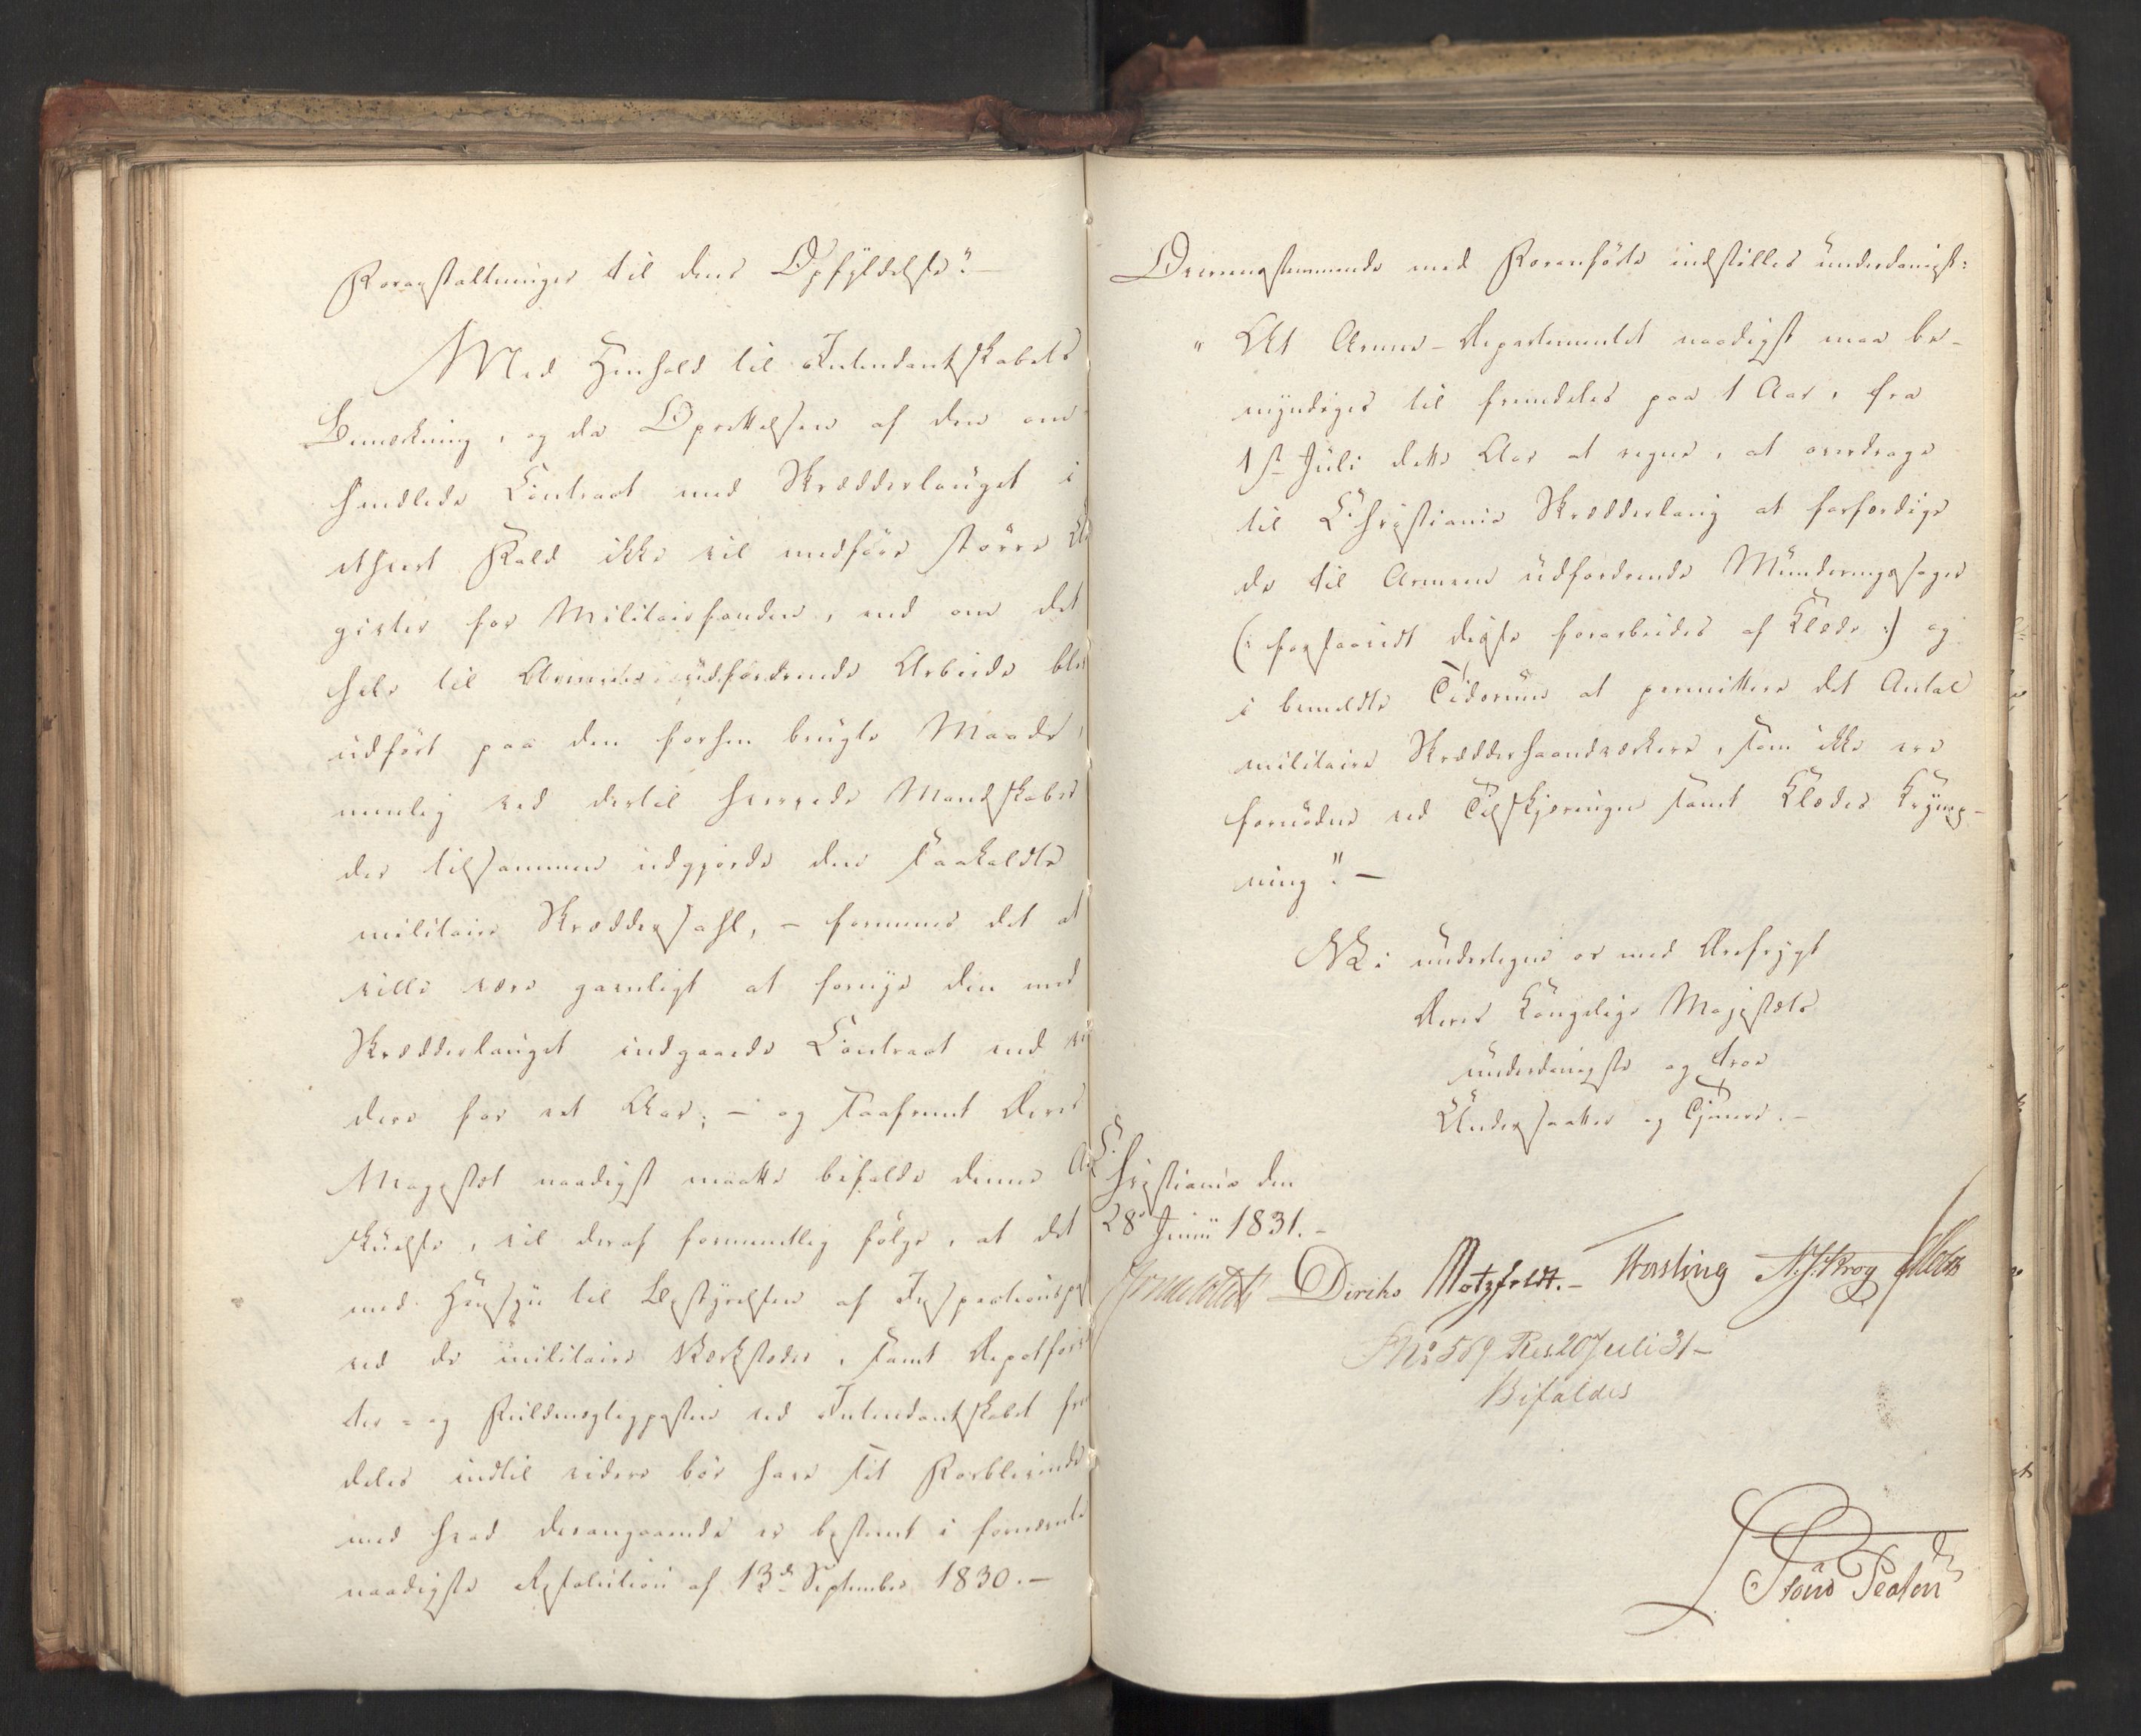 Foranstaltninger til dens Opfyldelse". —
Med Henhold til Intendantskabets
Bemærkning, og da Oprettelsen af den om-
handlede Contract med Skrædderlauget i
ethvert Fald ikke vil medføre større Ud
givter for Militairfonden, end om det
hele til Armeen udfordrende Arbeide blev
udført paa den forhen brugte Maade,
nemlig ved dertil hvervede Mandskaber
der tilsammen udgjorde den saakaldte
militaire Skræddersahl, – formenes det at
ville være gavnligt at fornye den med
Skrædderlauget indgaaede Contract end vi
dere for eet Aar; – og saafremt Deres
Majestæt naadigst maatte bifalde denne An
skuelse, vil deraf formeentlig følge, at det
med Hensyn til Bestyrelsen af Inspectionspost
ved de militaire Værksteder, samt Depotforval
ter- og Fuldmægtigposten ved Intendantskabet frem
deles indtil videre bør have sit Forblivende
med hvad desangaaende er bestemt i fornævnte
naadigste Resolution af 13de September 1830. —
Overensstemmende med Foranførte indstilles underdanigst:
" At Armee-Departementet naadigst maa be-
myndiges til fremdeles paa 1 Aar, fra
1ste Juli dette Aar at regne, at overdrage
til Christiania Skrædderlaug at forfærdige
de til Armeen udfordrende Munderingssager
(: forsaavidt disse forarbeides af Klæde :) og
i bemeldte Tidsrum at permittere det Antal
militaire Skrædderhaandværkere, som ikke ere
fornødne ved Tilskjæringen samt Klædets Krymp-
ning". —
Vi undertegne os med Ærefrygt
Deres Kongelige Majestæts
underdanigste og troe
Undersaatter og Tjenere. –
Christiania den
28de Junii 1831. –
Diriks Motzfeldt. – Fasting N. J. Krog
No 569 Res. 20 Juli 31 –
Bifaldes